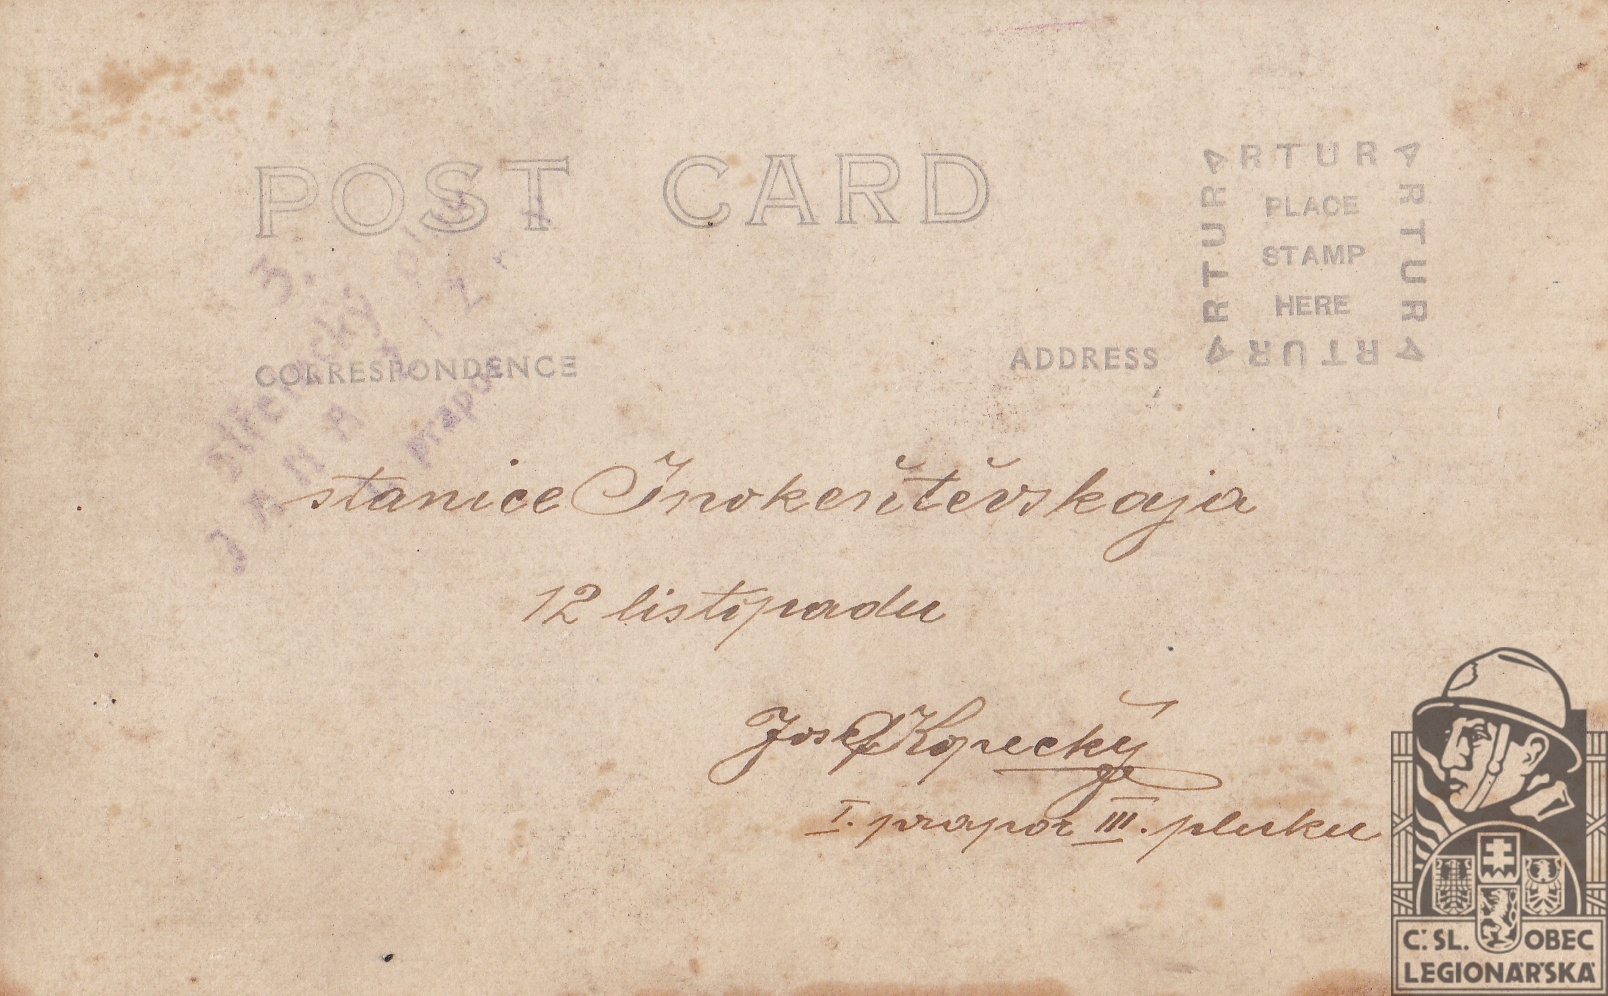 POST CARD
ARTURA ARTURA ARTURA ARTURA
PLACE
STAMP
HERE
3.
střelecký pluk
JANA ŽIŽKY
prapor
CORRESPONDENCE
ADDRESS
stanice Inokeňtěvskaja
12 listopadu
Josef Kopecký
I. prapor III. pluku
Č. SL. OBEC
LEGIONÁŘSKÁ